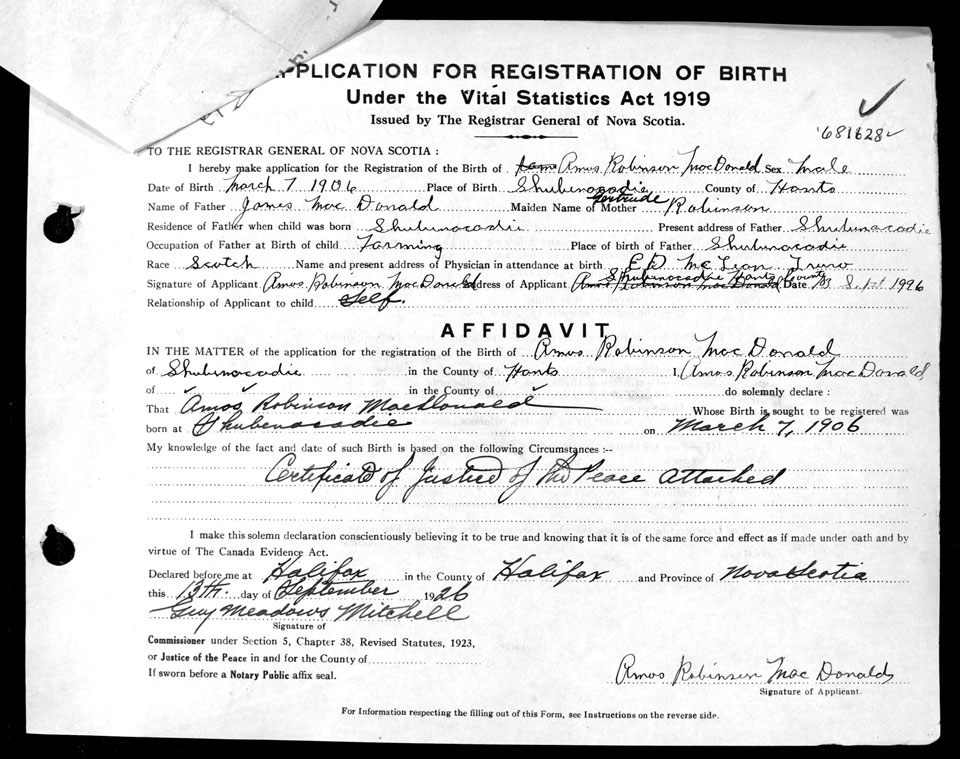 APPLICATION FOR REGISTRATION OF BIRTH
Under the Vital Statistics Act 1919
Issued by The Registrar General of Nova Scotia.
681628
TO THE REGISTRAR GENERAL OF NOVA SCOTIA :
I hereby make application for the Registration of the Birth of Amos Robinson MacDonald Sex Male
Date of Birth March 7 1906 Place of Birth Shubenacadie County of Hants
Name of Father James MacDonald Maiden Name of Mother Gertrude Robinson
Residence of Father when child was born Shubenacadie Present address of Father Shubenacadie
Occupation of Father at Birth of child Farming Place of birth of Father Shubenacadie
Race Scotch Name and present address of Physician in attendance at birth E D McLean Truro
Shubenacadie Hants County
Signature of Applicant Amos Robinson MacDonald Address of Applicant Amos Robinson MacDonald Date 13 Sept 1926
Relationship of Applicant to child Self.
AFFIDAVIT
IN THE MATTER of the application for the registration of the Birth of Amos Robinson MacDonald
of Shubenacadie in the County of Hants I, Amos Robinson MacDonald
of in the County of do solemnly declare :
That Amos Robinson MacDonald Whose Birth is sought to be registered was
born at Shubenacadie on March 7, 1906
My knowledge of the fact and date of such Birth is based on the following Circumstances :--
Certificate of Justice of the Peace attached
I make this solemn declaration conscientiously believing it to be true and knowing that it is of the same force and effect as if made under oath and by
virtue of The Canada Evidence Act.
Declared before me at Halifax in the County of Halifax and Province of Nova Scotia
this 13th. day of September 1926
Guy Meadows Mitchell
Signature of
Commissioner under Section 5, Chapter 38, Revised Statutes, 1923,
or Justice of the Peace in and for the County of
If sworn before a Notary Public affix seal.
Amos Robinson MacDonald
Signature of Applicant.
For Information respecting the filling out of this Form, see Instructions on the reverse side.